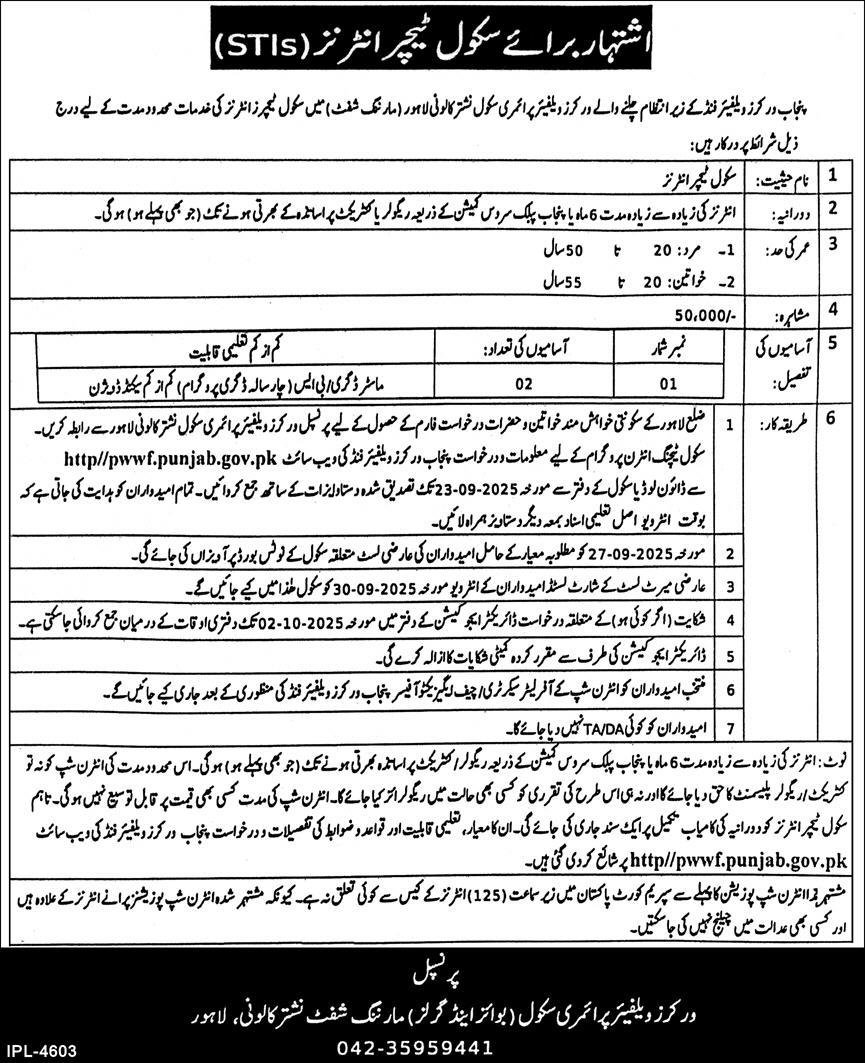 اشتہار برائے سکول ٹیچر انٹرنز (STIs)
پنجاب ورکرز ویلفیئر فنڈ کے زیر انتظام چلنے والے ورکرز ویلفیئر پرائمری سکول نشتر کالونی لاہور (مارننگ شفٹ) میں سکول ٹیچرز انٹرنز کی خدمات محدود مدت کے لیے درج
ذیل شرائط پر درکار ہیں:
1 نام حیثیت: سکول ٹیچر انٹرنز
2 دورانیہ: انٹرنز کی زیادہ سے زیادہ مدت 6 ماہ یا پنجاب پبلک سروس کمیشن کے ذریعہ ریگولر یا کنٹریکٹ پر اساتذہ کے بھرتی ہونے تک (جو بھی پہلے ہو) ہوگی۔
3 عمر کی حد: 1۔ مرد: 20 تا 50 سال
2۔ خواتین: 20 تا 55 سال
4 مشاہرہ: 50,000/-
5 آسامیوں کی تفصیل: نمبر شمار آسامیوں کی تعداد: کم از کم تعلیمی قابلیت
01 02 ماسٹر ڈگری/بی ایس (چار سالہ ڈگری پروگرام) کم از کم سیکنڈ ڈویژن
6 طریقہ کار: 1 ضلع لاہور کے سکونتی خواہش مند خواتین و حضرات درخواست فارم کے حصول کے لیے پرنسپل ورکرز ویلفیئر پرائمری سکول نشتر کالونی لاہور سے رابطہ کریں۔
سکول ٹیچنگ انٹرن پروگرام کے لیے معلومات و درخواست پنجاب ورکرز ویلفیئر فنڈ کی ویب سائٹ http//pwwf.punjab.gov.pk
سے ڈائون لوڈ یا سکول کے دفتر سے مورخہ 23-09-2025 تک تصدیق شدہ دستاویزات کے ساتھ جمع کروائیں۔ تمام امیدواران کو ہدایت کی جاتی ہے کہ
بوقت انٹرویو اصل تعلیمی اسناد بمعہ دیگر دستاویز ہمراہ لائیں۔
2 مورخہ 27-09-2025 کو مطلوبہ معیار کے حامل امیدواران کی عارضی لسٹ متعلقہ سکول کے نوٹس بورڈ پر آویزاں کی جائے گی۔
3 عارضی میرٹ لسٹ کے شارٹ لسٹڈ امیدواران کے انٹرویو مورخہ 30-09-2025 کو سکول ھٰذا میں کیے جائیں گے۔
4 شکایت (اگر کوئی ہو) کے متعلقہ درخواست ڈائریکٹر ایجوکیشن کے دفتر میں مورخہ 02-10-2025 تک دفتری اوقات کے درمیان جمع کروائی جاسکتی ہے۔
5 ڈائریکٹر ایجوکیشن کی طرف سے مقرر کردہ کمیٹی شکایات کا ازالہ کرے گی۔
6 منتخب امیدواران کو انٹرن شپ کے آفر لیٹر سیکرٹری/چیف ایگزیکٹو آفیسر پنجاب ورکرز ویلفیئر فنڈ کی منظوری کے بعد جاری کیے جائیں گے۔
7 امیدواران کو کوئی TA/DA نہیں دیا جائے گا۔
نوٹ: انٹرنز کی زیادہ سے زیادہ مدت 6 ماہ یا پنجاب پبلک سروس کمیشن کے ذریعہ ریگولر/کنٹریکٹ پر اساتذہ بھرتی ہونے تک (جو بھی پہلے ہو) ہوگی۔ اس محدود مدت کی انٹرن شپ کو نہ تو
کنٹریکٹ/ریگولر پلیسمنٹ کا حق دیا جائے گا اور نہ ہی اس طرح کی تقرری کو کسی بھی حالت میں ریگولرائز کیا جائے گا۔ انٹرن شپ کی مدت کسی بھی قیمت پر قابل توسیع نہیں ہوگی۔ تاہم
سکول ٹیچر انٹرنز کو دورانیہ کی کامیاب تکمیل پر ایک سند جاری کی جائے گی۔ ان کا معیار، تعلیمی قابلیت اور قواعد و ضوابط کی تفصیلات و درخواست پنجاب ورکرز ویلفیئر فنڈ کی ویب سائٹ
http//pwwf.punjab.gov.pk پر شائع کر دی گئی ہیں۔
مشتہر ہذا انٹرن شپ پوزیشن کا پہلے سے سپریم کورٹ پاکستان میں زیر سماعت (125) انٹرنز کے کیس سے کوئی تعلق نہ ہے۔ کیونکہ مشتہر شدہ انٹرن شپ پوزیشنز پرانے انٹرنز کے علاوہ ہیں
اور کسی بھی عدالت میں چیلنج نہیں کی جاسکتیں۔
پرنسپل
ورکرز ویلفیئر پرائمری سکول (بوائز اینڈ گرلز) مارننگ شفٹ نشتر کالونی، لاہور
042-35959441
IPL-4603